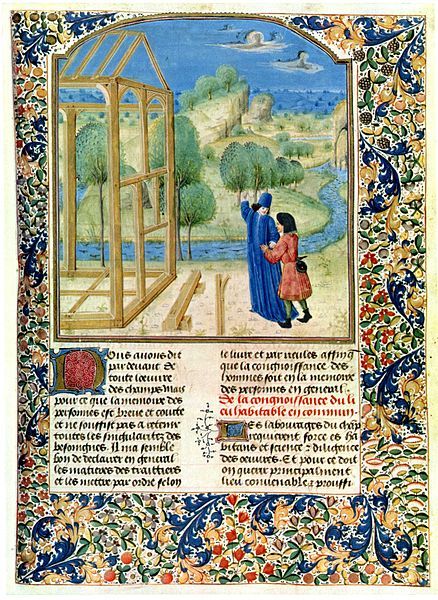 Nous avons dit
par devant de
toute loeuvre
des champs. mais
pour ce que la memoire des
personnes est breue et courte
et ne souffist pas a retenir
toutes les singularitez des
besongnes. Il ma semble
bon de declarer en general
les matieres des traittiers
et les mettre par ordre selon
le liure et par rieules affin
que la congnoissance des
hommes soit en la memoire
des personnes en general.
De la congnoissance du li
eu habitable en commun.
Les labourages du chap
requierent force es ha
bitans et science & diligence
des oeuures. Et pour ce doit
on querre principalment
lieu conuenable & prouffi